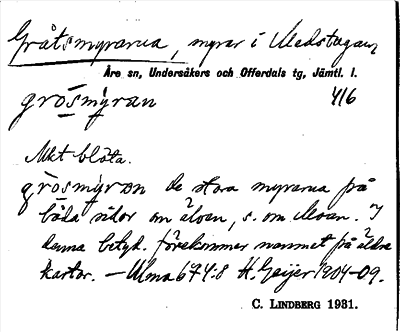 Gråtsmyrarna, myrar i Medstugan
Åre sn, Undersåkers och Offerdals tg, Jämtl. l.
grōsmy̆ran 4/6
Mkt blöta.
grōsmyran de stora myrarna på
båda sidor om älven, s. om Moan. I
denna betyd. förekommer namnet på äldre
kartor. — Ulma 674:8 H. Geijer 1904-09.
C. LINDBERG 1931.